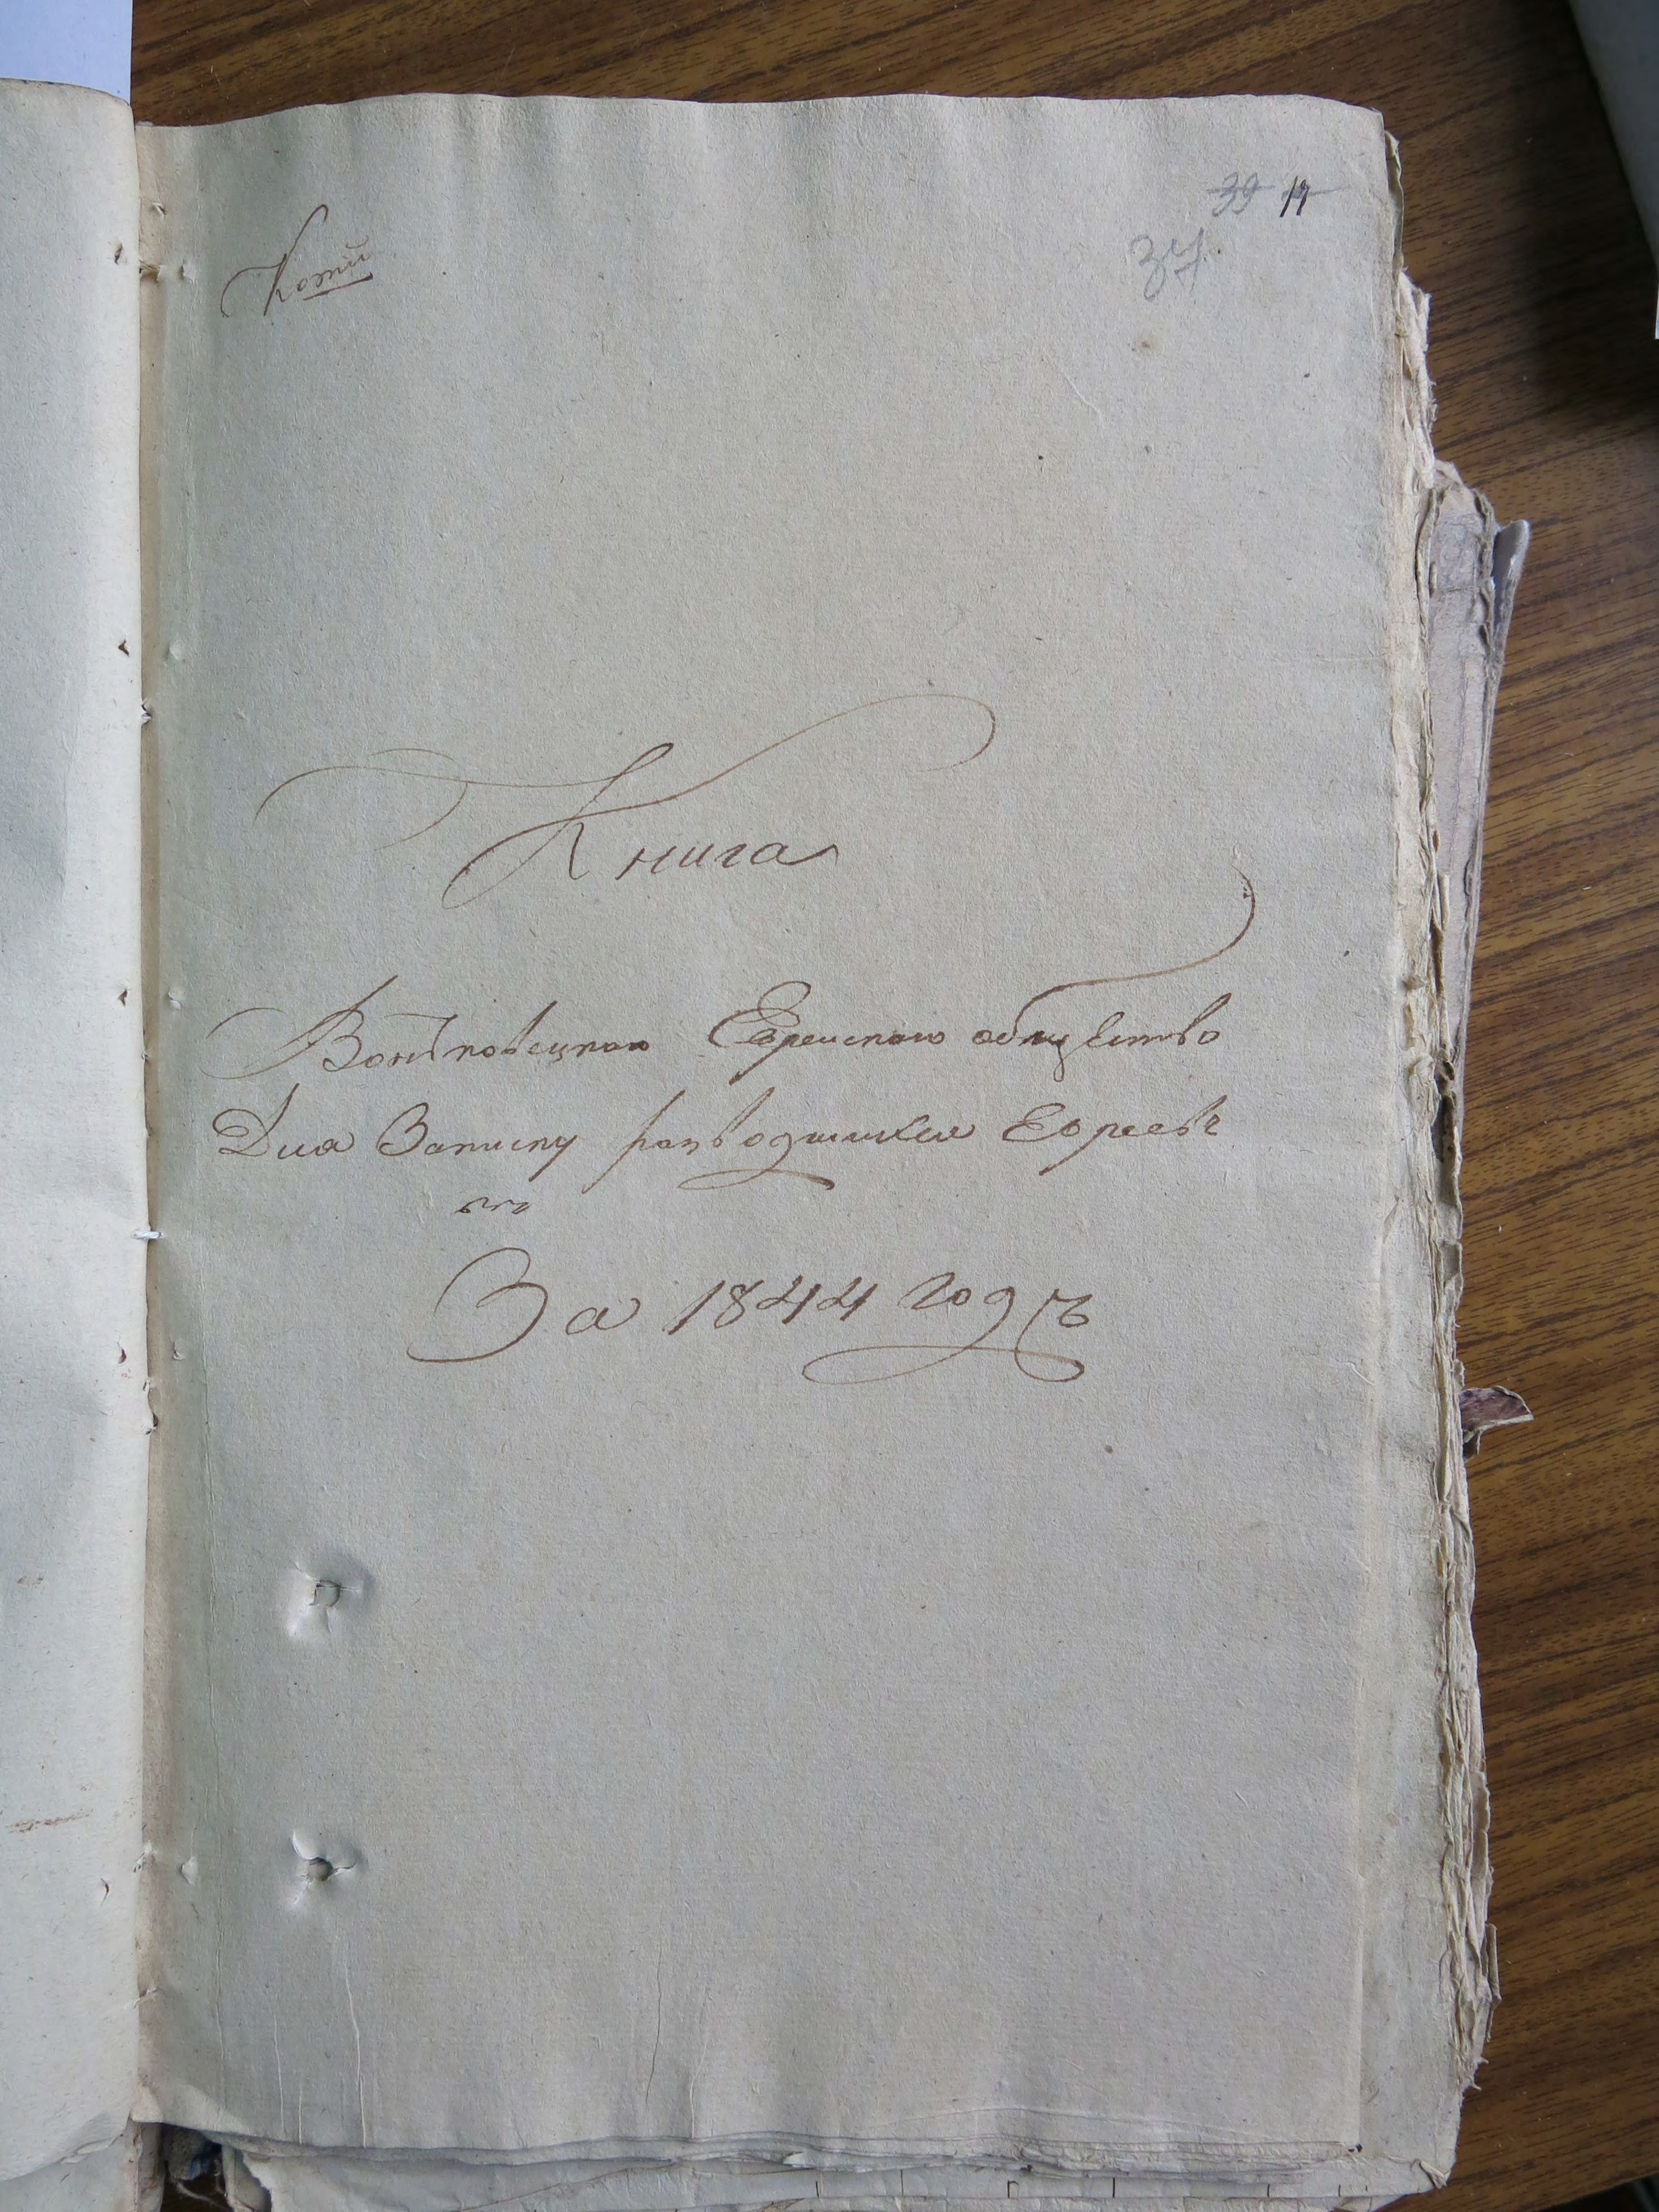 39 19
37
Копiй
Книга
Вонковецкаго Еврейскаго общества
Для Записки разводящихся Евреевъ
За 1844 годъ